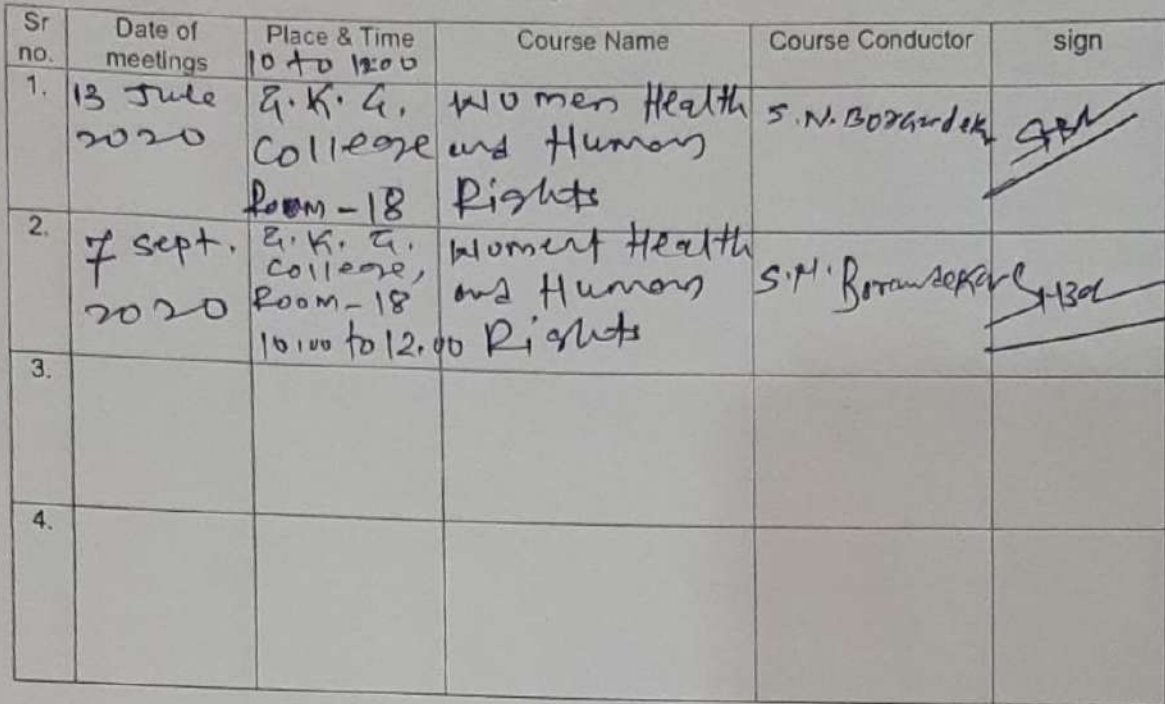 Sr no. Date of meetings Place & Time 10 to 12:00 Course Name Course Conductor sign
1. 13 June 2020 G.K.G. College Room-18 Women Health and Human Rights S.N.Borgundek
2. 7 sept. 2020 G.K.G. College, Room-18 10:00 to 12.00 Woment Health and Human Rights S.N. Borawdekar
3.
4.